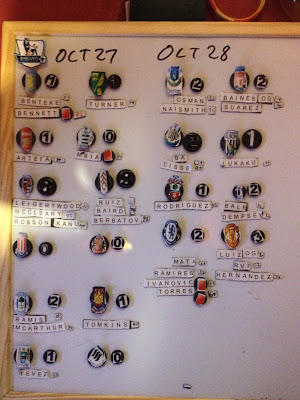 OCT 27
OCT 28
BENTEKE
BENNETT
1
TURNER
1
ARTETA
1
MBIA
0
LEIGERTWOOD
MCCLEARY
ROBSON KANU
3
RUIZ
BAIRD
BERBATOV
3
0
0
RAMIS
MCARTHUR
2
TOMKINS
1
TEVEZ
1
0
OSMAN
NAISMITH
2
BAINES OG
SUAREZ
2
BA
CISSE
2
LUKAKU
1
RODRIGUEZ
1
BALE
DEMPSEY
2
MATA
RAMIRES
IVANOVIC
TORRES
2
LUIZ OG
RVP
HERNANDEZ
3